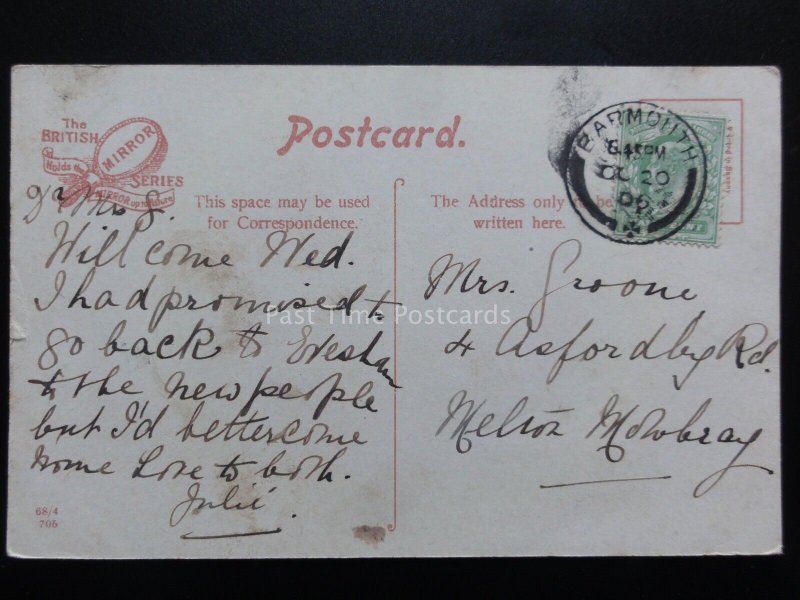 The
BRITISH
MIRROR
Holds
MIRROR up to Nature
SERIES
Postcard.
This space may be used
for Correspondence.
The Address only to be
written here.
BARMOUTH
8.45PM
OC 20
09
Dr Mrs G.
Will come Wed.
I had promised to
go back to Evesham
to the new people
but I'd better come
home Love to both.
Julie.
Mrs. Groone,
4 Asfordby Rd.
Melton Mowbray
68/4
705
Past Time Postcards